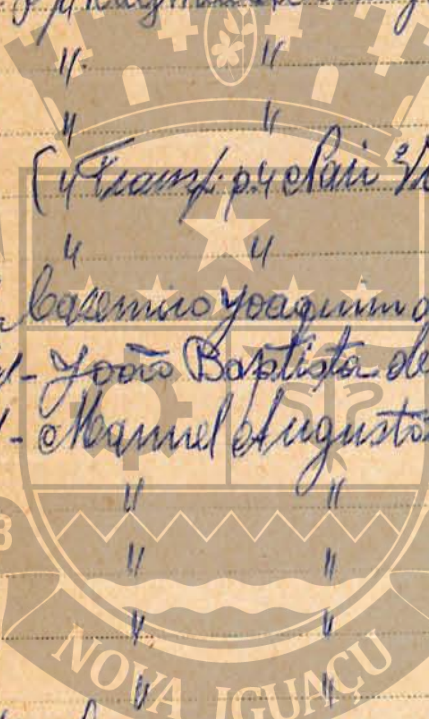 " "
" "
(" Transf. p.
" "
Casemiro Joaquim
- João Baptista de
- Manuel Augusto
" "
3
" "
" "
" "
NOVA IGUAÇU